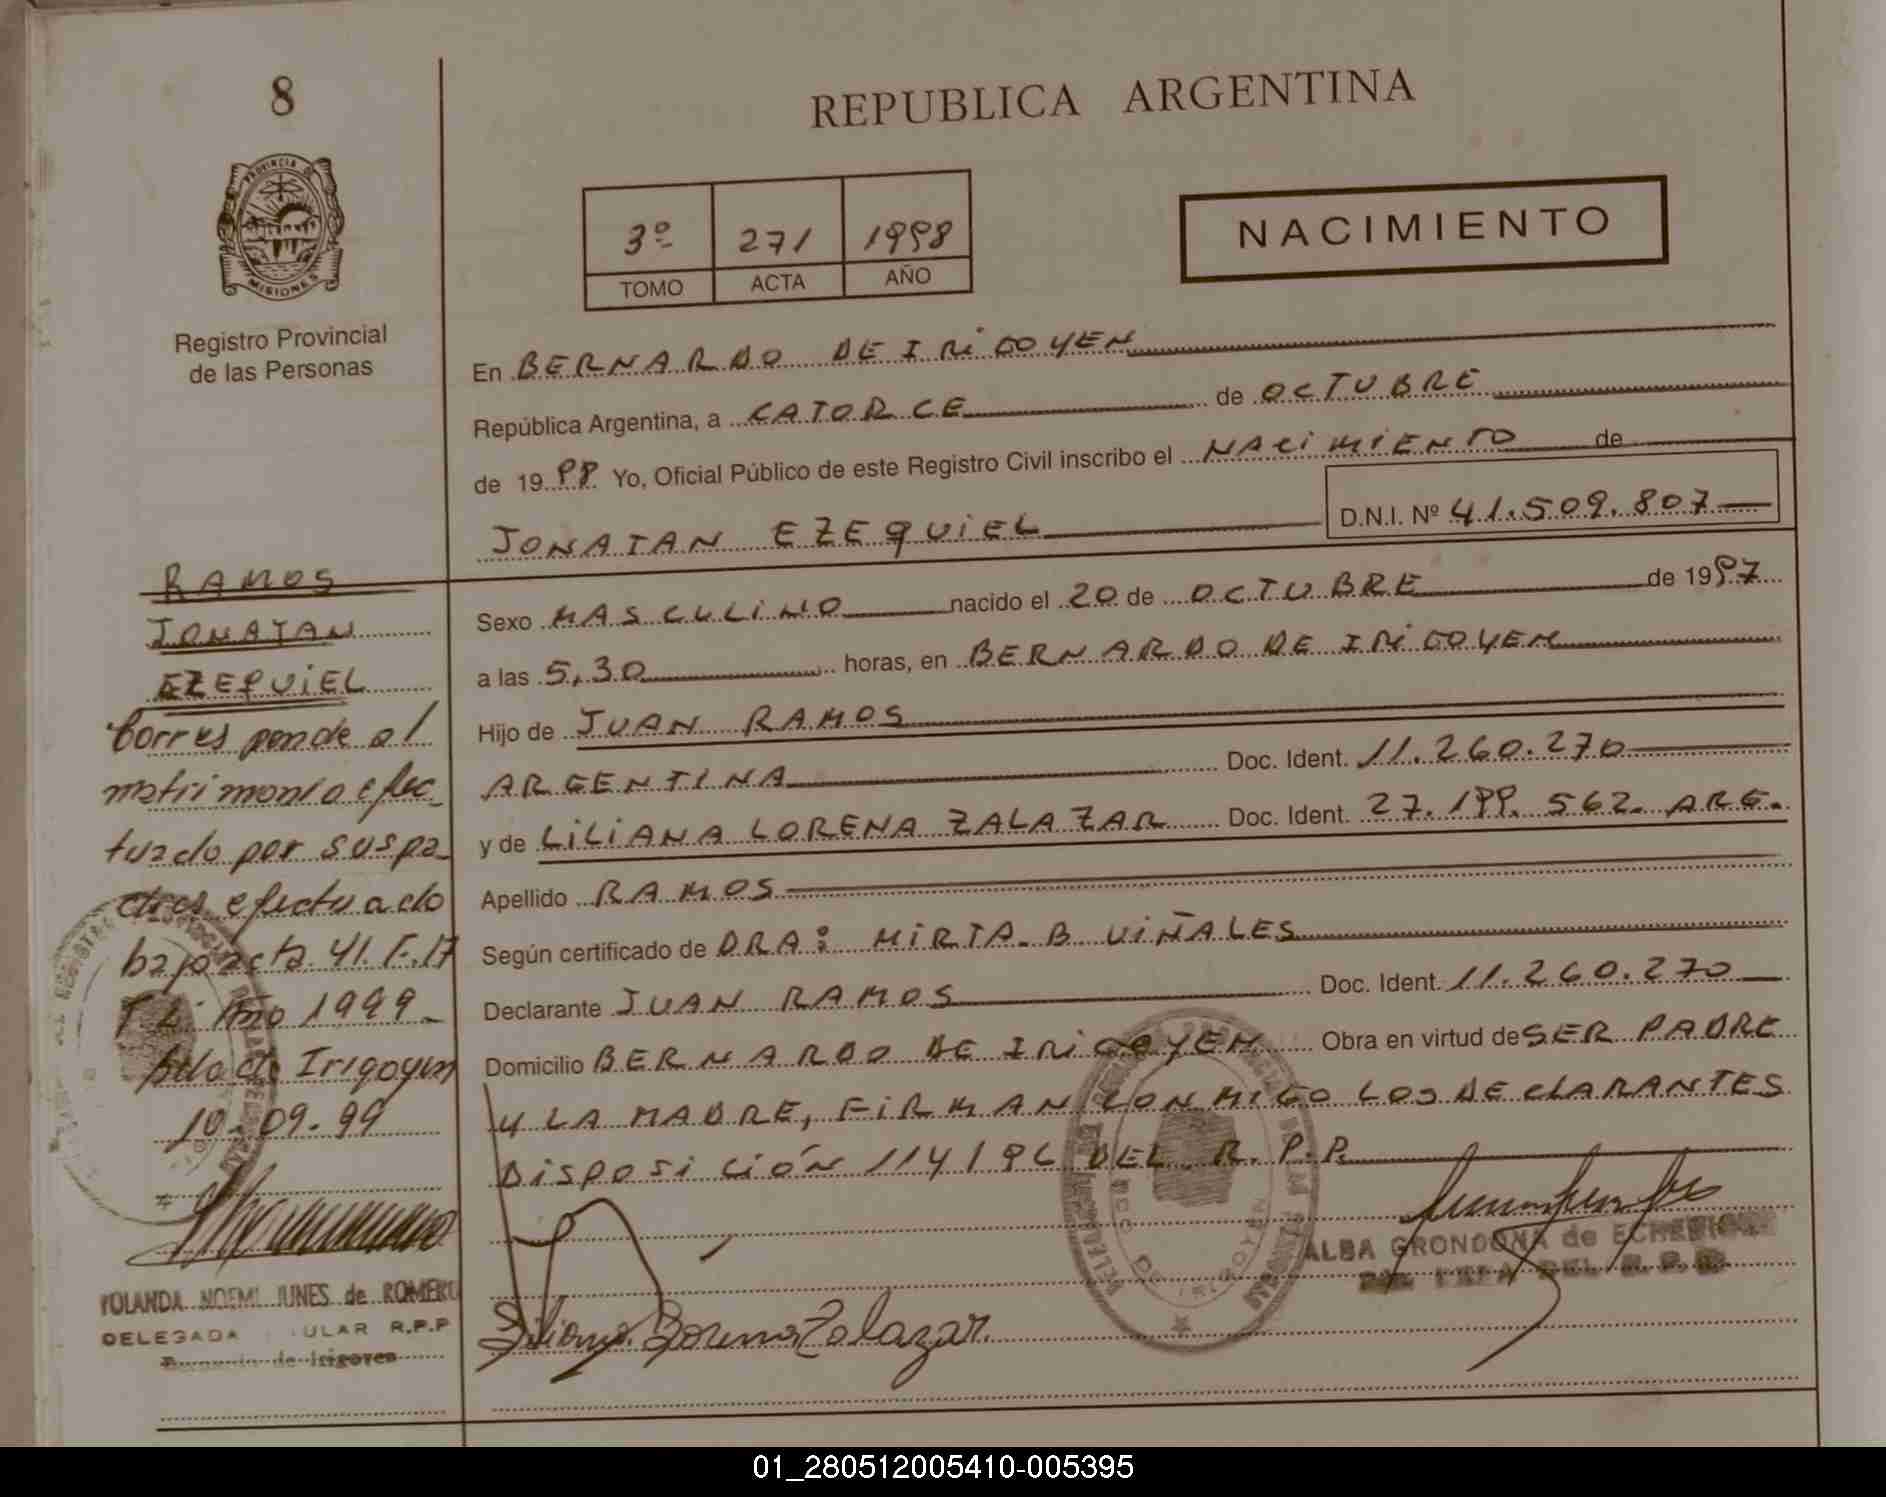 8
PROVINCIA DE
MISIONES
Registro Provincial
de las Personas
REPUBLICA ARGENTINA
3º 271 1998
TOMO ACTA AÑO
NACIMIENTO
En BERNARDO DE IRIGOYEN
República Argentina, a CATORCE de OCTUBRE
de 1998 Yo, Oficial Público de este Registro Civil inscribo el NACIMIENTO de
JONATAN EZEQUIEL D.N.I. Nº 41.509.807
Sexo MASCULINO nacido el 20 de OCTUBRE de 1997
a las 5,30 horas, en BERNARDO DE IRIGOYEN
Hijo de JUAN RAMOS
ARGENTINA Doc. Ident. 11.260.270
y de LILIANA LORENA ZALAZAR Doc. Ident. 27.199.562. ARG.
Apellido RAMOS
Según certificado de DRA: MIRTA. B VIÑALES
Declarante JUAN RAMOS Doc. Ident. 11.260.270
Domicilio BERNARDO DE IRIGOYEN Obra en virtud de SER PADRE
Y LA MADRE, FIRMAN CONMIGO LOS DECLARANTES
DISPOSICIÓN 114/96 DEL R.P.P.
Liliana Lorena Zalazar.
ALBA GRONDONA de
DEL R.P.P.
RAMOS
JONATAN
EZEQUIEL
Corresponde al
matrimonio efec_
tuado por sus pa_
dres efectuado
bajo acta 41. F. 17
Año 1999_
Bdo de Irigoyen
10-09-99
YOLANDA NOEMI de ROMERO
DELEGADA R.P.P
de Irigoyen
01_280512005410-005395